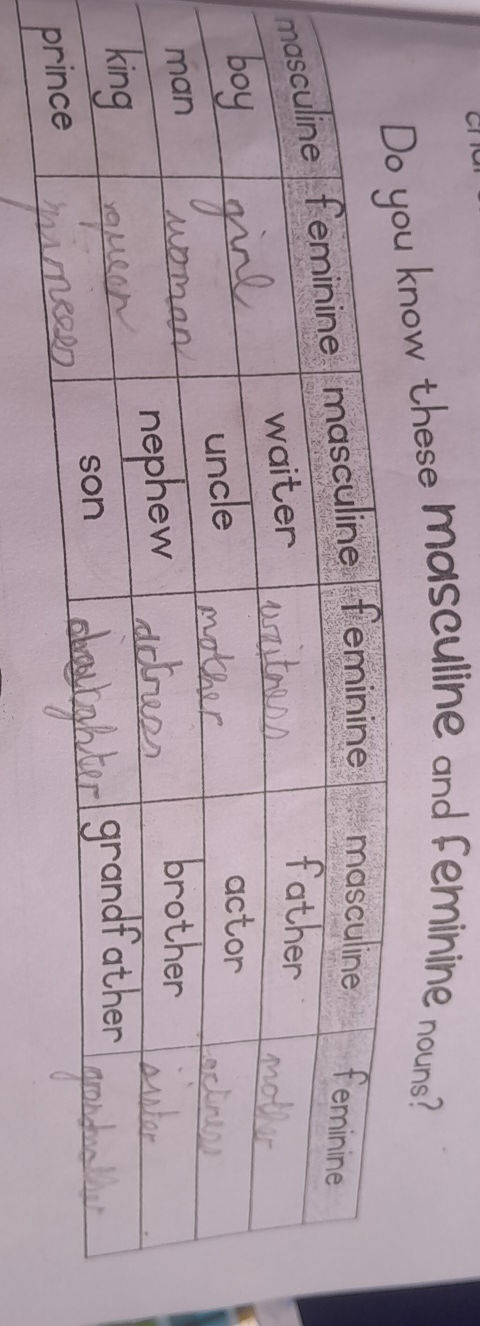 Do you know these masculine and feminine nouns?
masculine feminine masculine feminine masculine feminine
boy girl waiter waitness father mother
man woman uncle mother actor actness
king queen nephew actress brother sister
prince princess son daughter grandfather grandmother